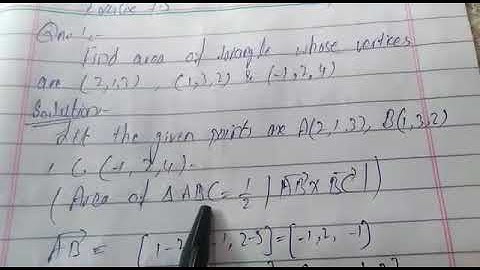 Exercise
Qno 1:-
Find area of triangle whose vertices
are (2,1,3), (1,3,2) & (-1,2,4)
Solution:-
Let the given points are A(2,1,3), B(1,3,2)
, C(-1,2,4).
(Area of △ABC = 1/2 | AB⃗ × BC⃗ |)
AB⃗ = [1-2, -1, 2-3] = [-1, 2, -1]